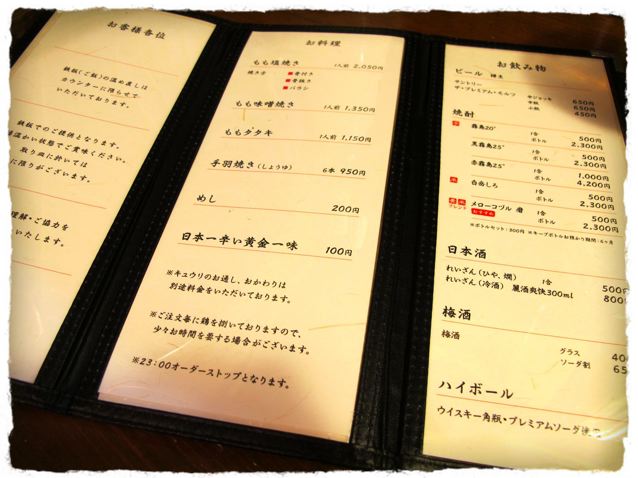 お客様各位
鉄板(ご飯)の温め直しは
カウンターに限らせて
いただいております。
鉄板でのご提供となります。
温かい状態でご賞味ください。
取り皿に於いては
に限りがございます。
理解・ご協力を
いたします。
お料理
もも塩焼き 1人前 2,050円
焼き方 ■骨付き
■骨抜き
■バラシ
もも味噌焼き 1人前 1,350円
ももタタキ 1人前 1,150円
手羽焼き(しょうゆ) 6本 950円
めし 200円
日本一辛い黄金一味 100円
※キュウリのお通し、おかわりは
別途料金をいただいております。
※ご注文毎に鶏を捌いておりますので、
少々お時間を要する場合がございます。
※23:00オーダーストップとなります。
お飲み物
ビール 樽生
サントリー
ザ・プレミアム・モルツ 中ジョッキ 650円
中瓶 650円
小瓶 450円
焼酎
芋 霧島20° 1合 500円
ボトル 2,300円
黒霧島25° 1合 500円
ボトル 2,300円
赤霧島25° 1合 1,000円
ボトル 4,200円
米 白岳しろ 1合 500円
ボトル 2,300円
ブレンド メローコヅル 磨 1合 500円
おすすめ ボトル 2,300円
※ボトルセット:300円 ※キープボトルお預かり期間:6ヶ月
日本酒
れいざん(ひや、燗) 1合 500円
れいざん(冷酒) 麗酒爽快300ml 800
梅酒
梅酒 グラス 40
ソーダ割 65
ハイボール
ウイスキー角瓶・プレミアムソーダ使用